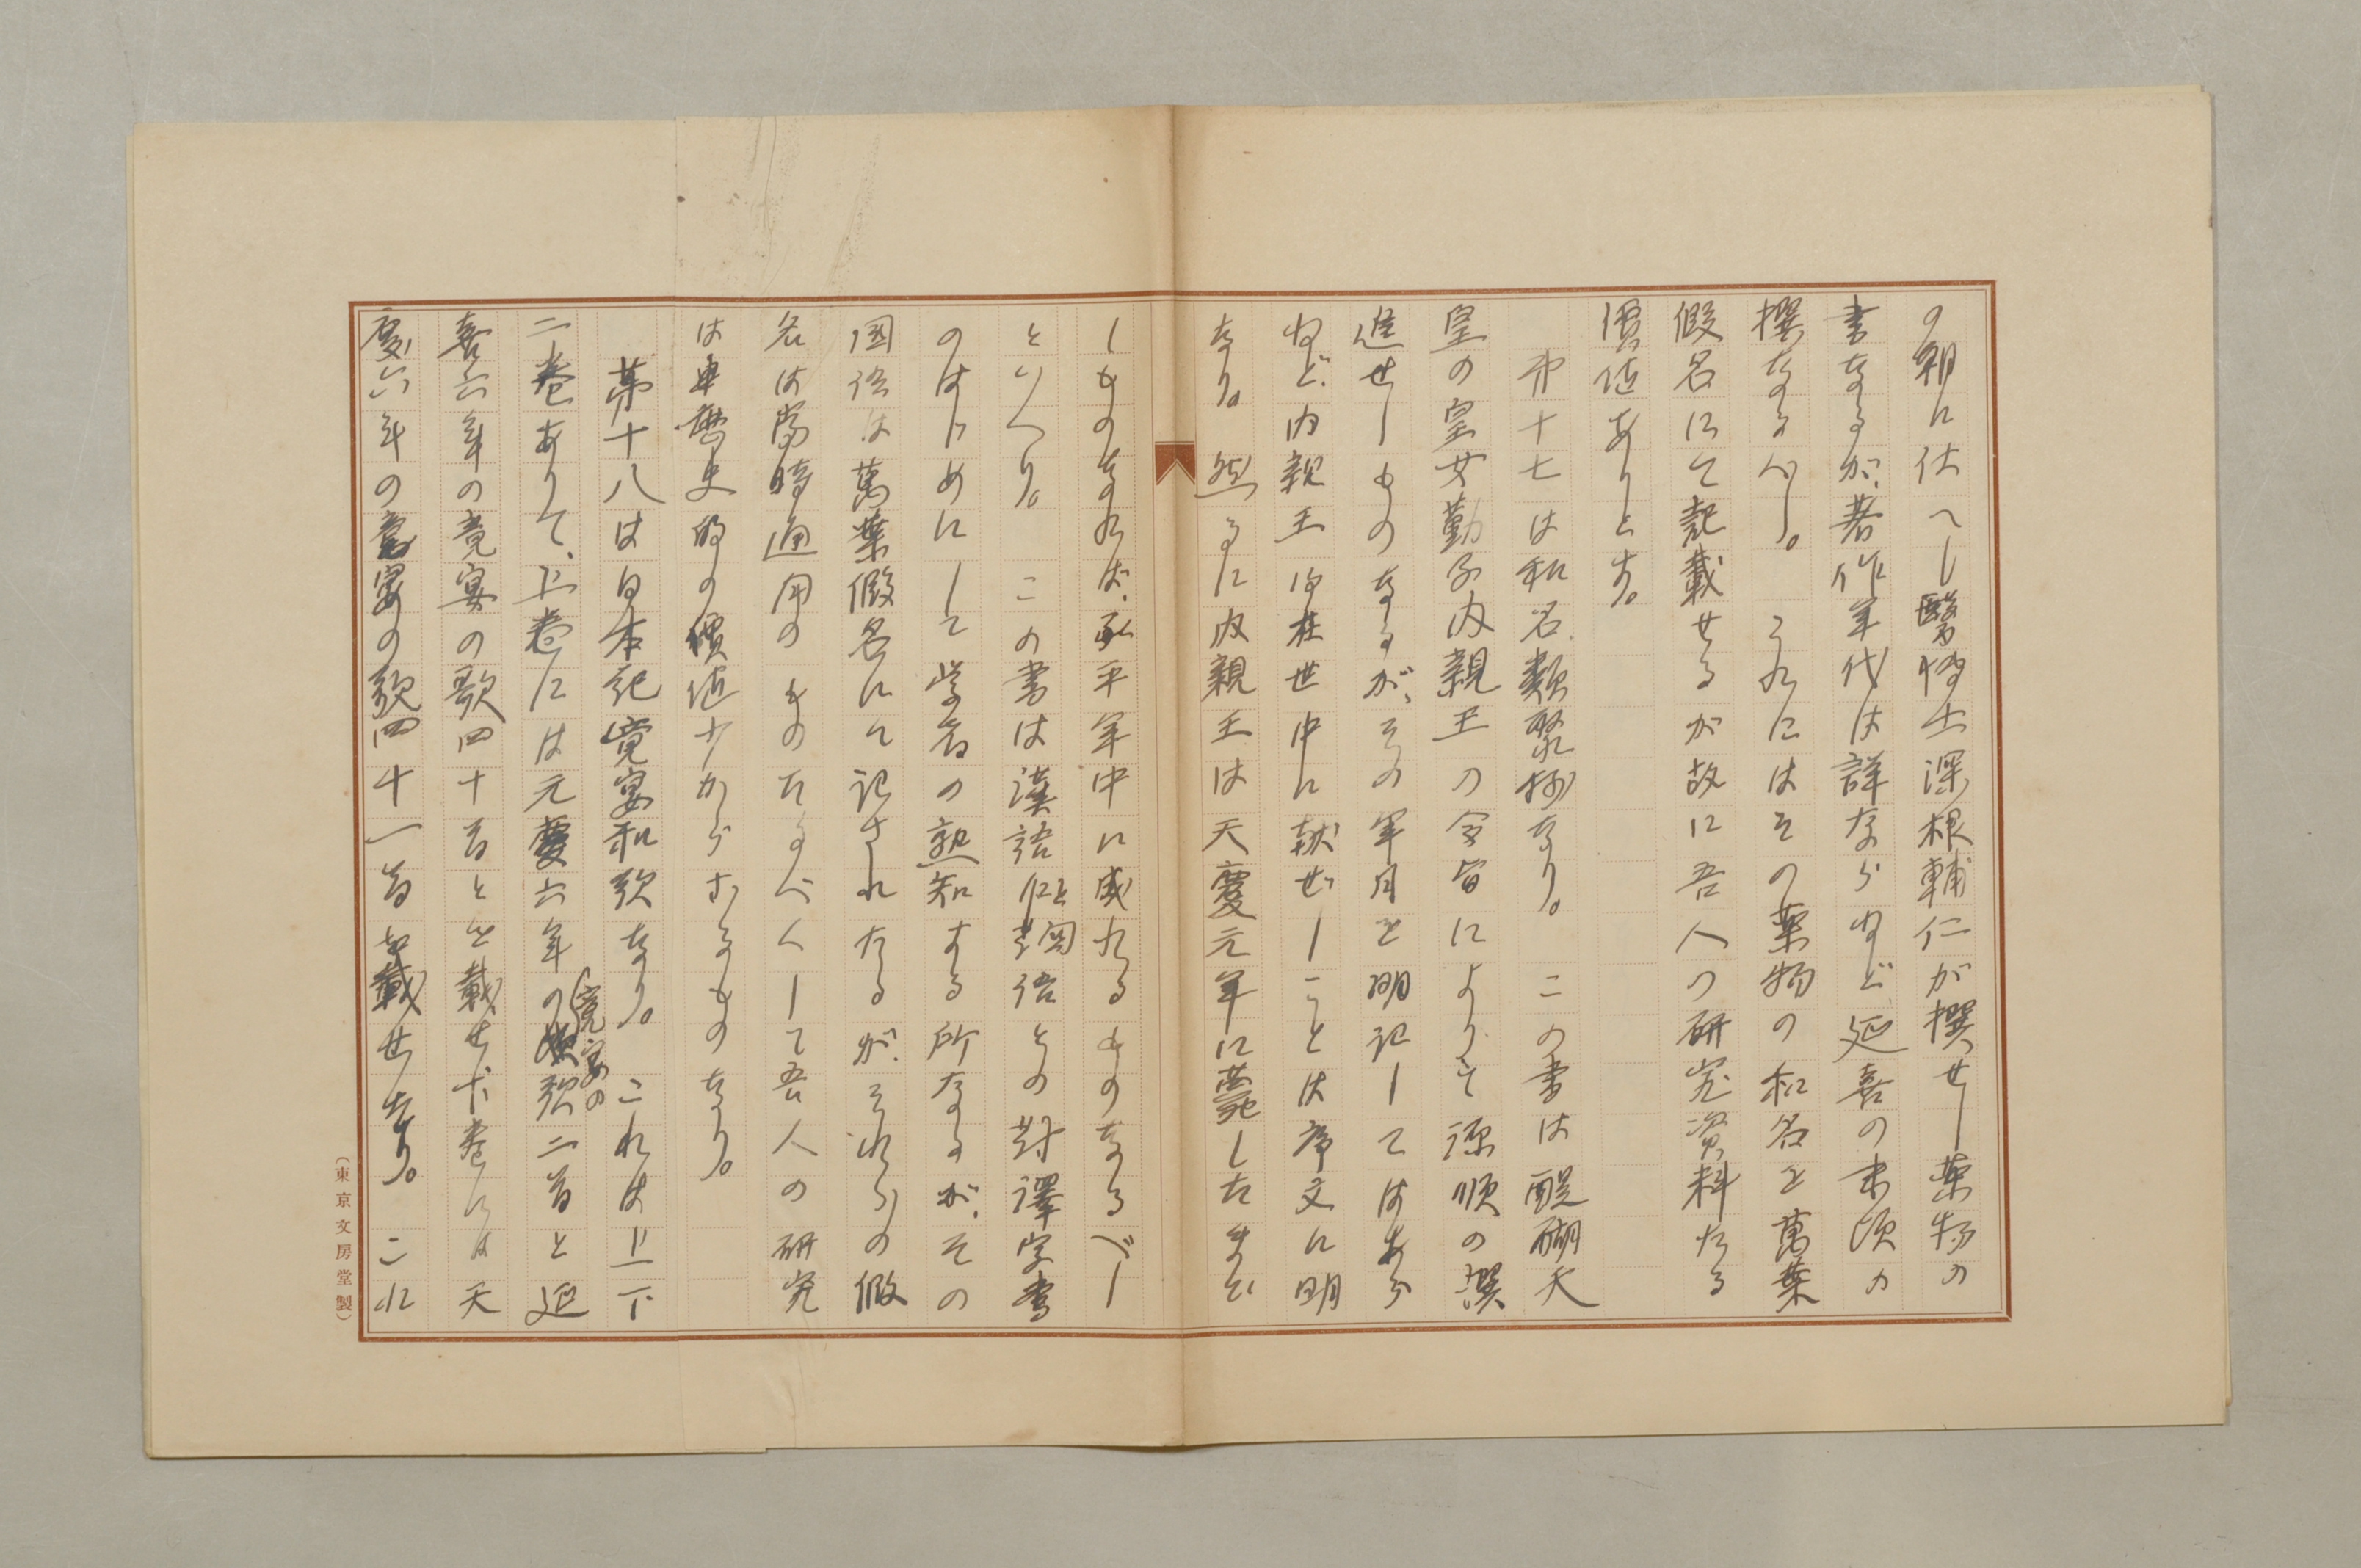 の朝に仕へし醫博士深根輔仁が撰せし薬物の
書なるが、著作年代は詳ならねど、延喜の末頃の
撰なるべし。これにはその薬物の和名を萬葉
假名にて記載せるが故に吾人の研究資料たる
價値ありとす。
第十七は和名類聚抄なり。この書は醍醐天
皇の皇女勤子内親王の令旨によりて源順の撰
進せしものなるが、その年月を明記してはあら
ねど、内親王御在世中に献ぜしことは序文に明
なり。然るに内親王は天慶元年に薨したまひ
しものなれば、承平年中に成れるものなるべし
といへり。この書は漢語と國語との對譯字書
のはじめにして学者の熟知する所なるが、その
国語は萬葉假名にて記されたるが、それらの假
名は当時通用のものなるべくして吾人の研究
は専歴史的の價値少からざるものなり。
第十八は日本紀竟宴和歌なり。これは上下
二巻ありて、上巻には元慶六年の竟宴の歌二首と延
喜六年の竟宴の歌四十首とを載せ下巻には天
慶六年の竟宴の歌四十一首を載せたり。これ
(東京文房堂製)